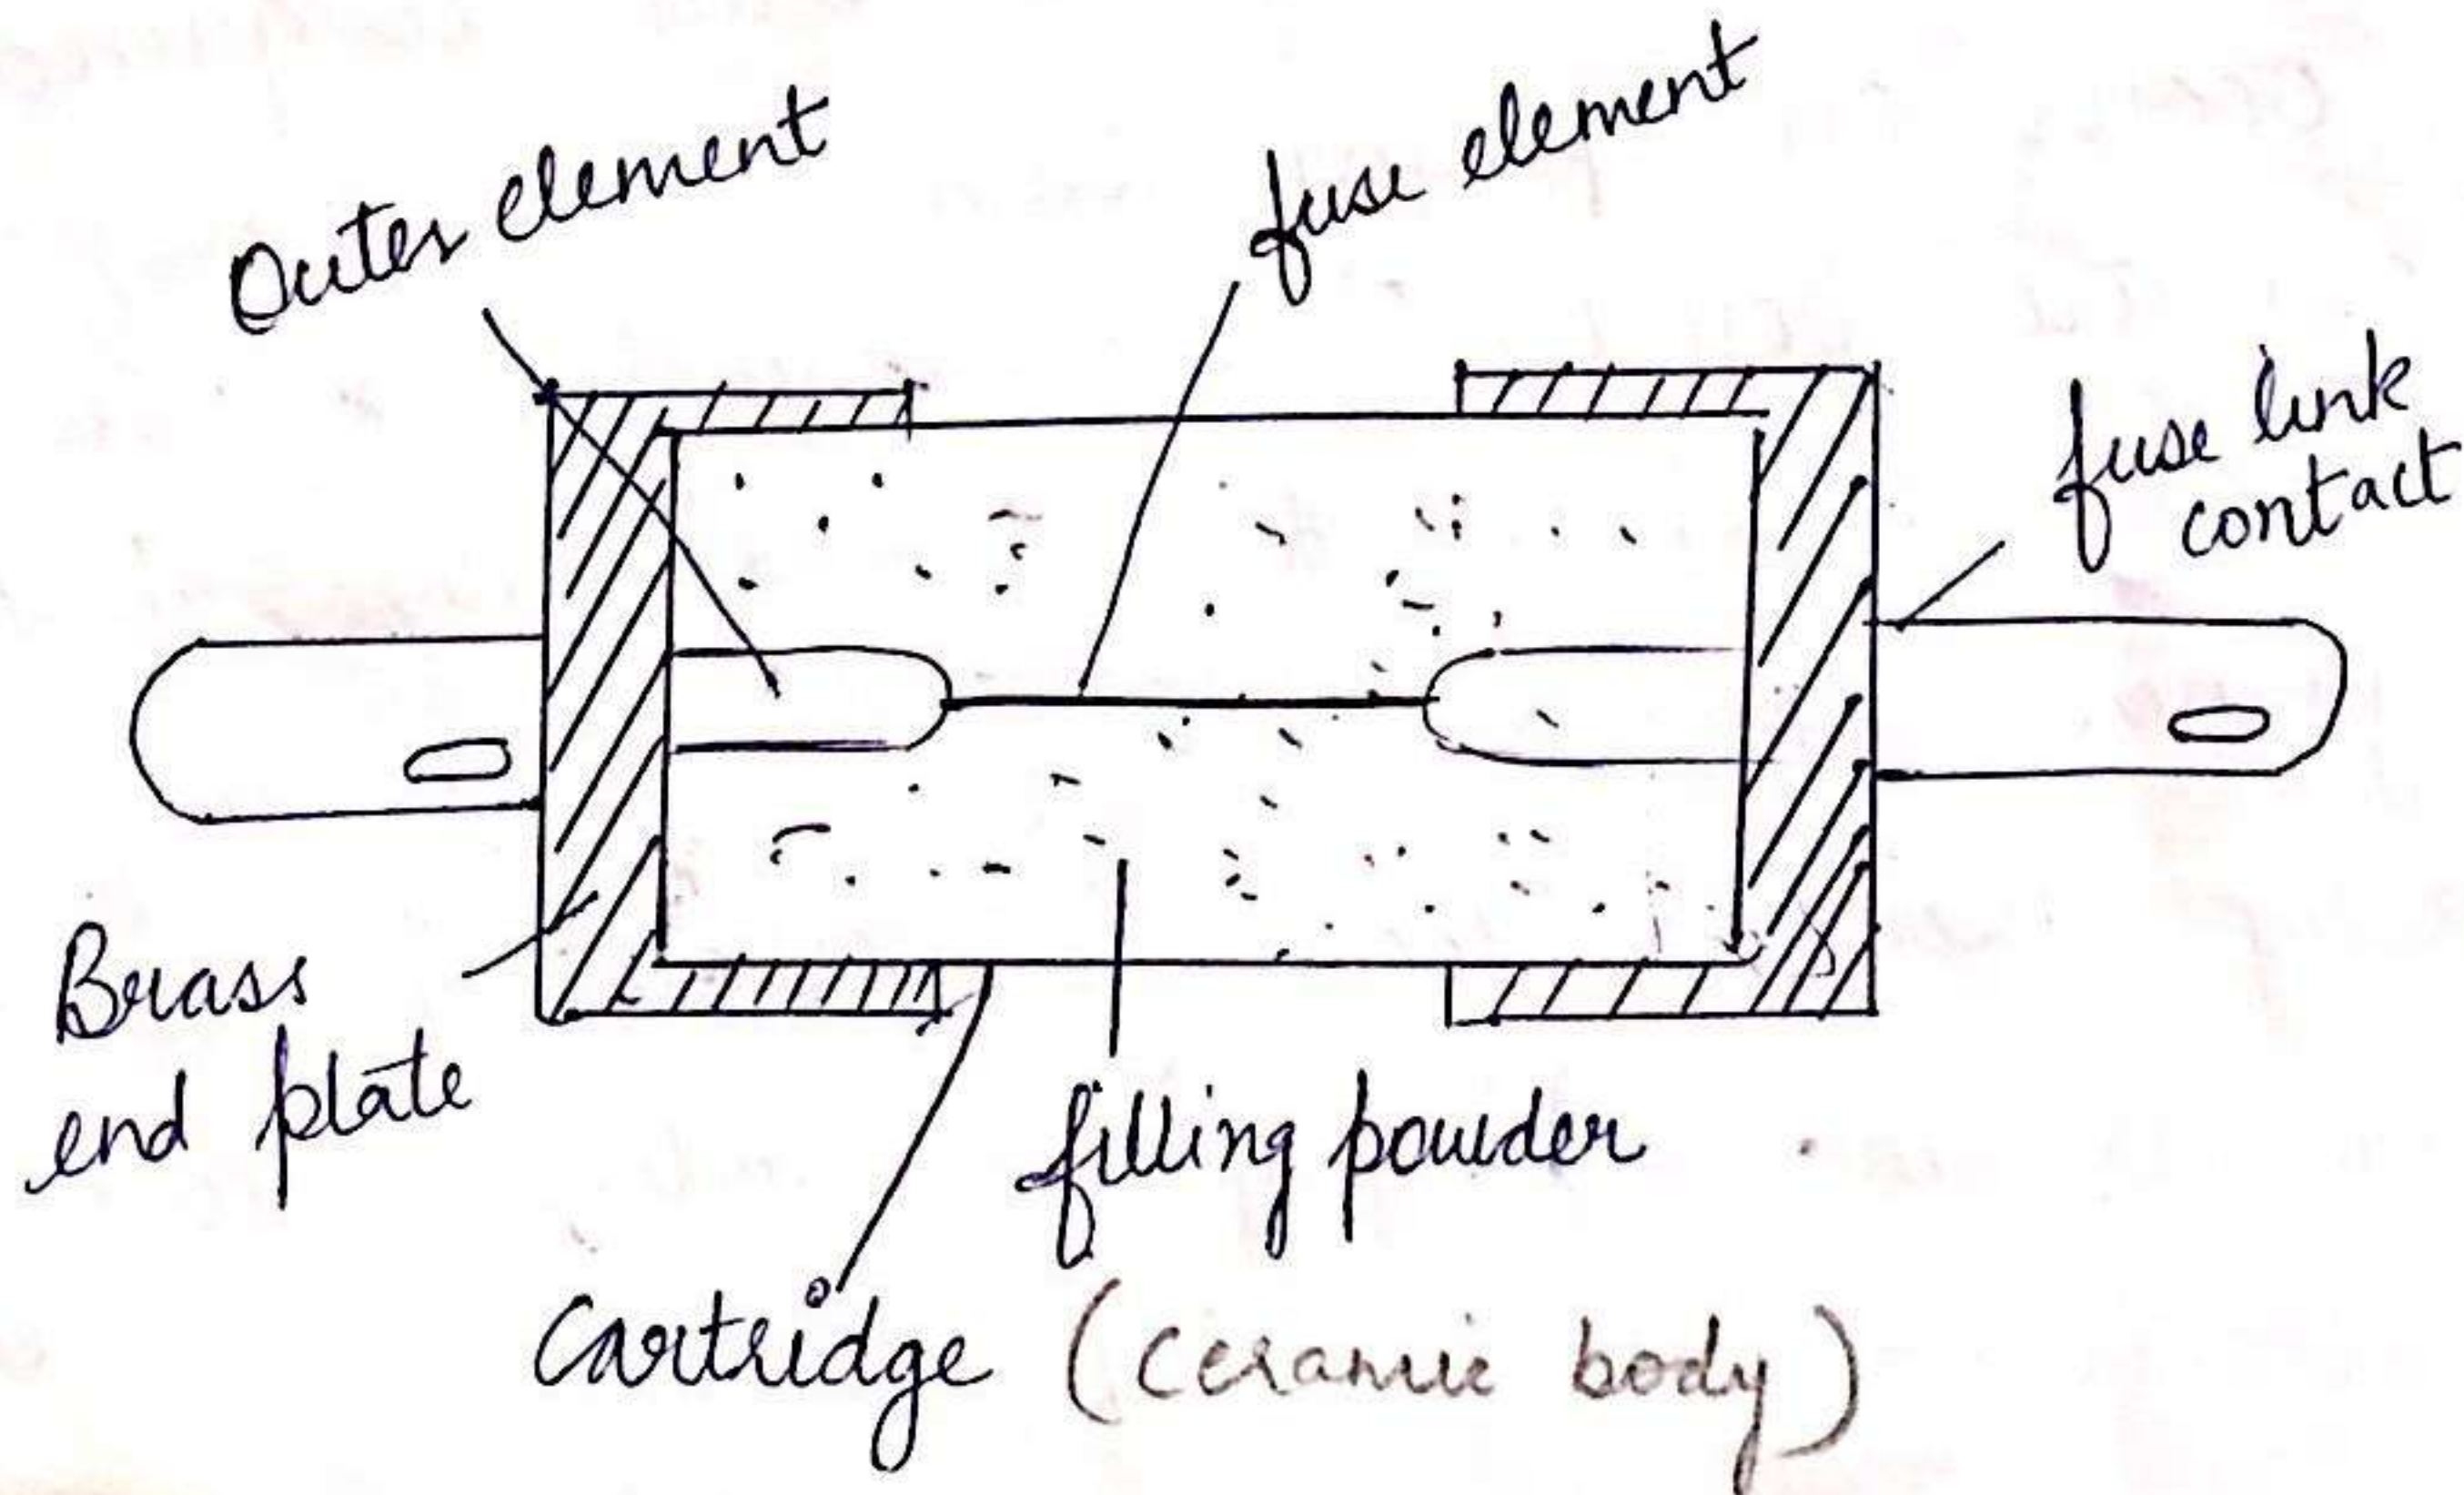 Outer element
fuse element
fuse link
contact
Brass
end plate
filling powder
Cartridge (ceramic body)